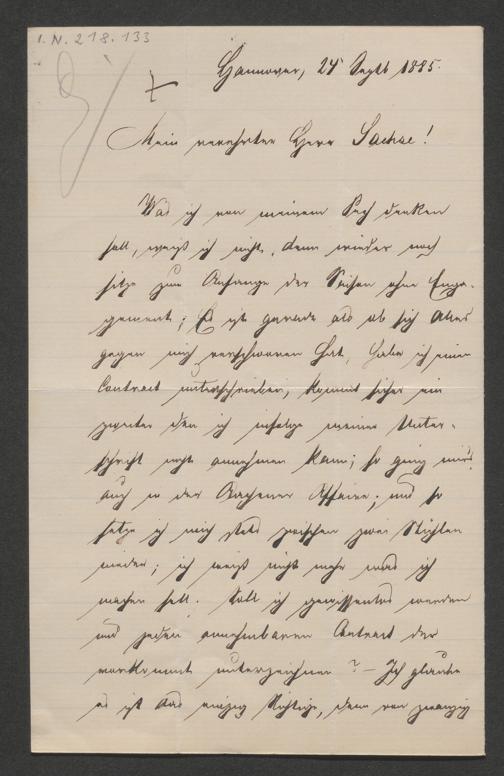 I. N. 218.133
Hannover, 24 Septb 1885.
Mein verehrter Herr Sachse!
Was ich von meinem Pech denken
soll, weiß ich nicht, denn wieder noch
sitze zum Anfange der Saison ohne Enga-
gement; Es ist gerade als ob sich Alles
gegen mich verschworen hat, habe ich einen
Contract unterschrieben, kommt sicher ein
zweiter den ich infolge meiner Unter-
schrift nicht annehmen kann; so ging mir's
auch in der Aachener Affaire; und so
setze ich mich stets zwischen zwei Stühlen
nieder; ich weiß nicht mehr was ich
machen soll. Soll ich gewissenlos werden
und jeden annehmbaren Contract der
vorkommt unterzeichnen? – Ich glaube
es ist das einzig Richtige, denn von zwanzig